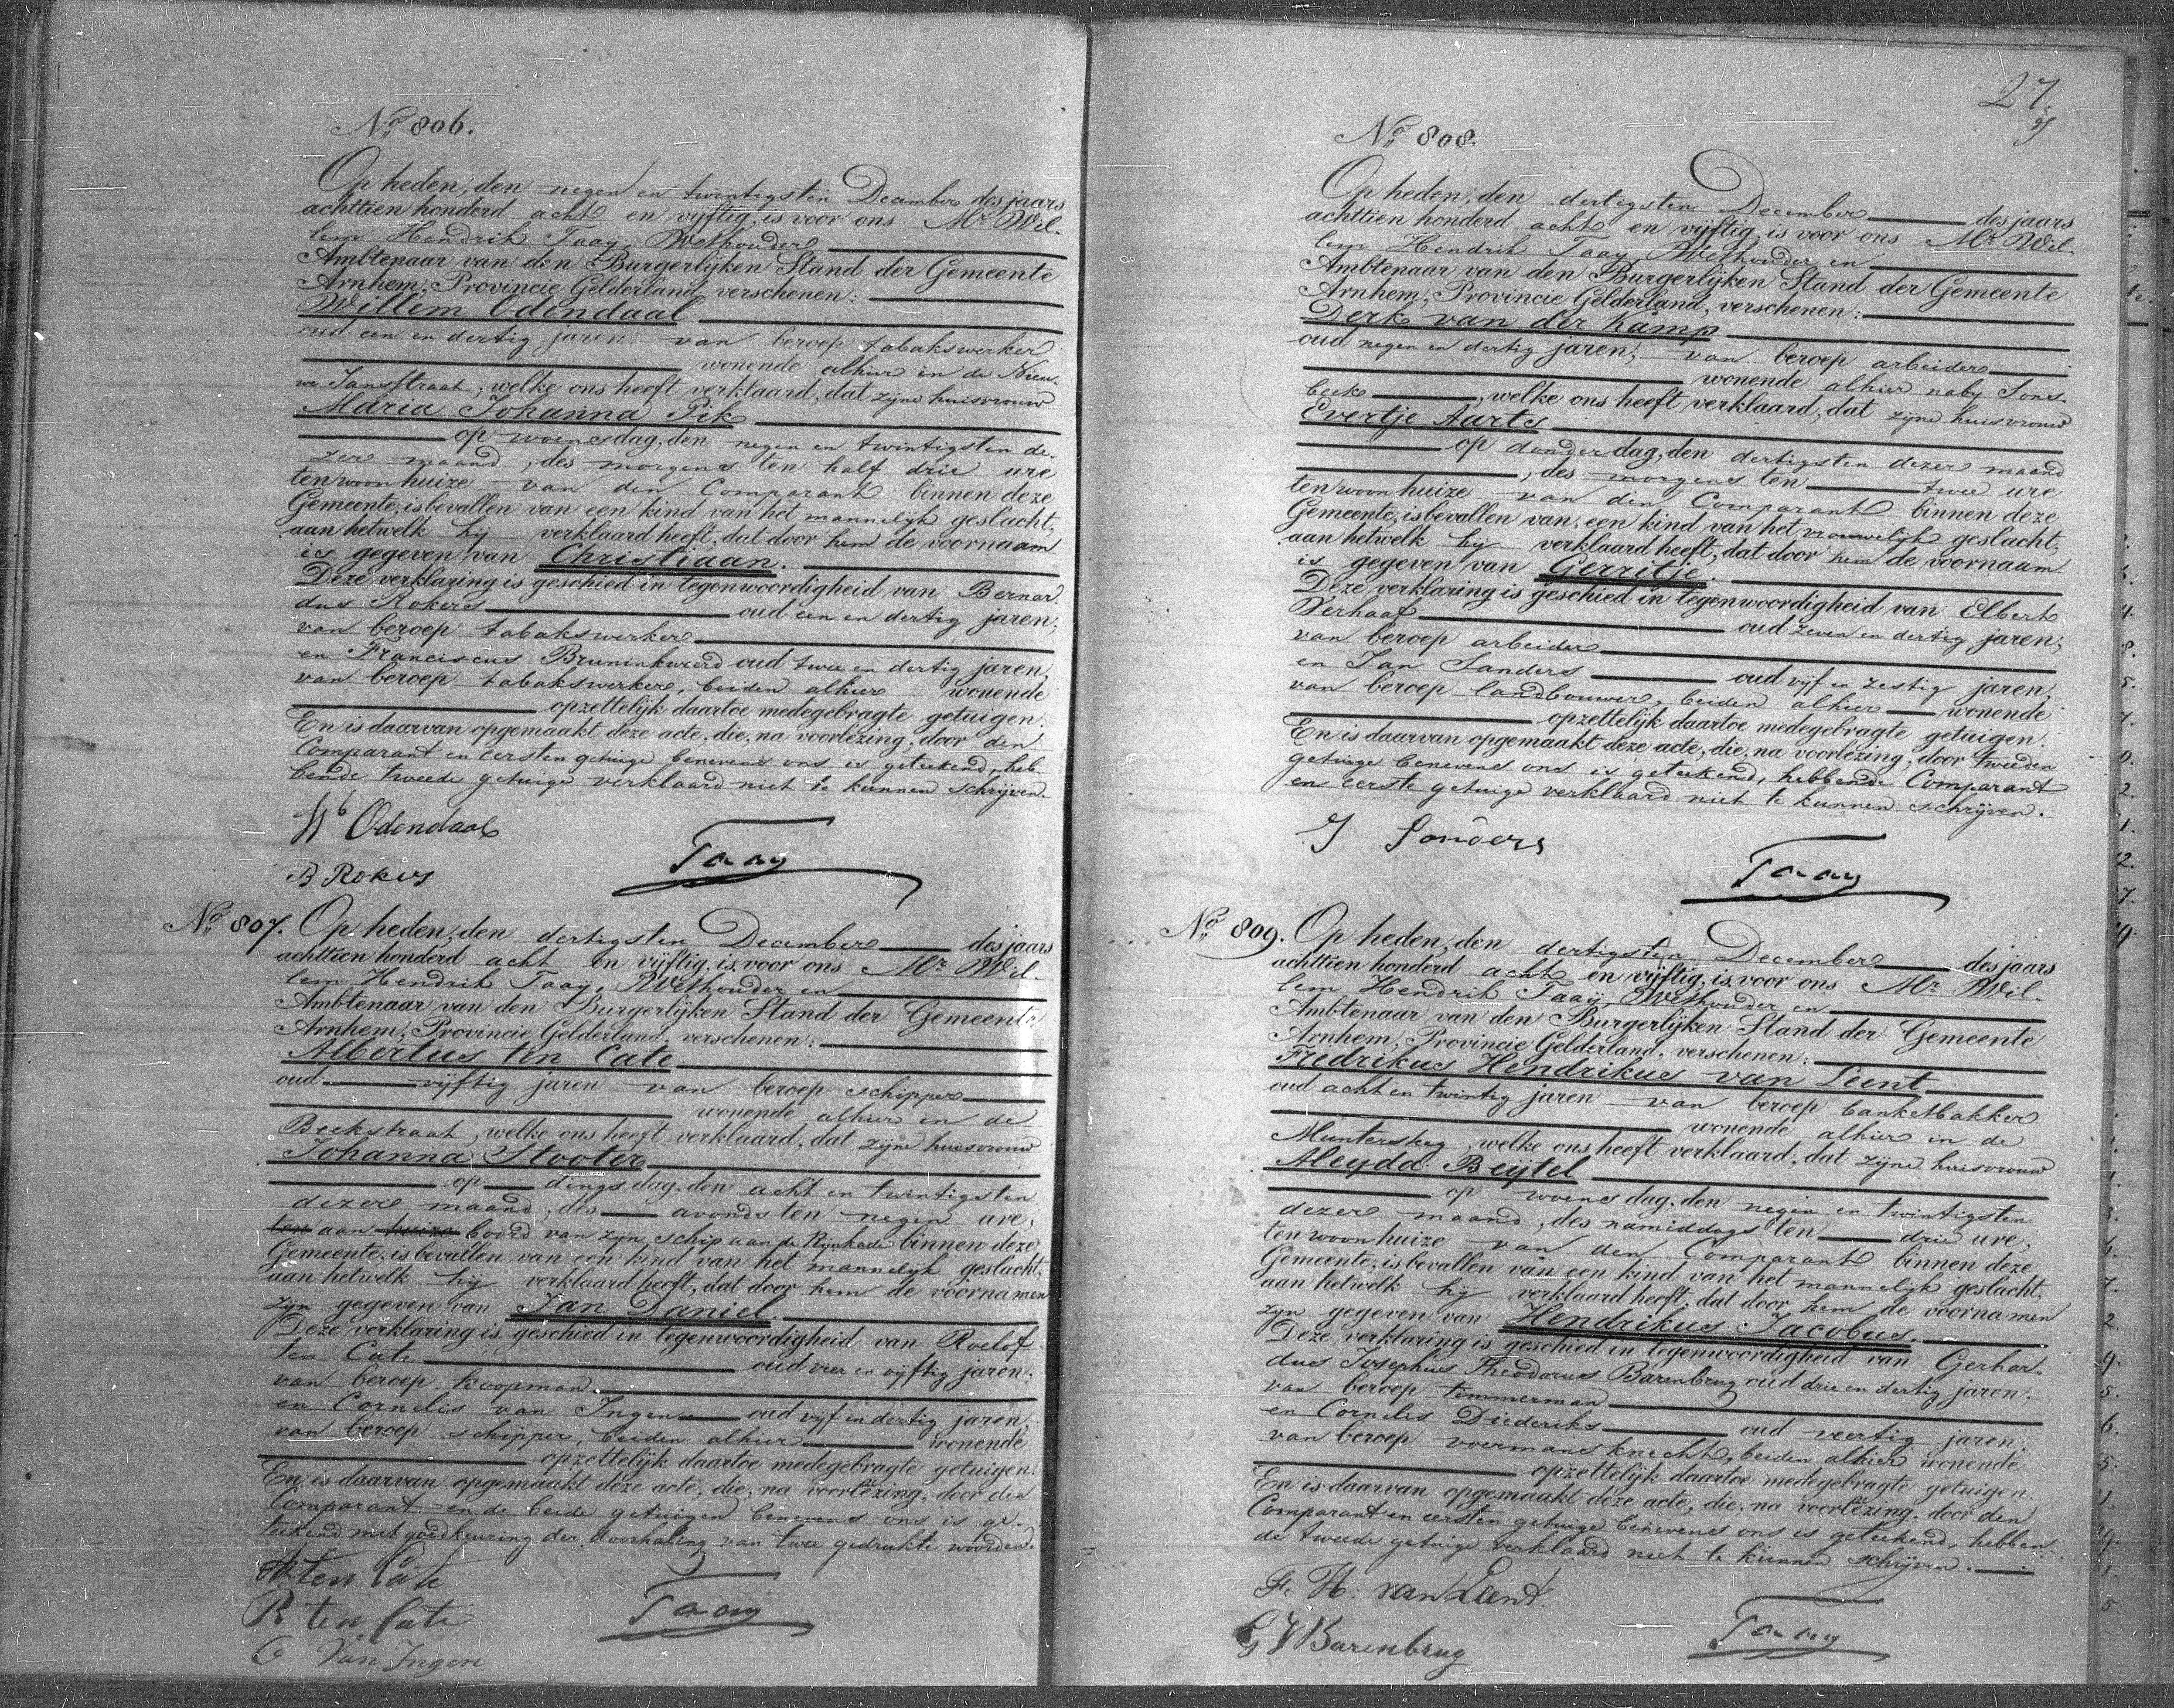 No. 806.
Op heden, den negen en twintigsten December des jaars
achttien honderd acht en vijftig, is voor ons Mr. Wil-
lem Hendrik Taay, Wethouder
Ambtenaar van den Burgerlijken Stand der Gemeente
Arnhem, Provincie Gelderland, verschenen:
Willem Odendaal
oud een en dertig jaren, van beroep tabakswerker
wonende alhier in de Nieu-
we Jansstraat, welke ons heeft verklaard, dat zijne huisvrouw
Maria Johanna Pik
op woensdag, den negen en twintigsten de-
zer maand, des morgens ten half drie ure
ten woonhuize van den Comparant binnen deze
Gemeente, is bevallen van een kind van het mannelijk geslacht,
aan hetwelk hij verklaard heeft, dat door hem de voornaam
is gegeven van Christiaan.
Deze verklaring is geschied in tegenwoordigheid van Bernar-
dus Rokers oud een en dertig jaren,
van beroep tabakswerker
en Franciscus Bruninkweerd oud twee en dertig jaren,
van beroep tabakswerker, beiden alhier wonende
opzettelijk daartoe medegebragte getuigen.
En is daarvan opgemaakt deze acte, die, na voorlezing, door den
Comparant en eersten getuige benevens ons is geteekend, heb-
bende tweede getuige verklaard niet te kunnen schrijven.
Wb Odendaal
B Rokers
Taay
No. 807. Op heden, den dertigsten December des jaars
achttien honderd acht en vijftig, is voor ons Mr. Wil-
lem Hendrik Taay, Wethouder en
Ambtenaar van den Burgerlijken Stand der Gemeente
Arnhem, Provincie Gelderland, verschenen:
Albertus ten Cate
oud vijftig jaren van beroep schipper
wonende alhier in de
Beekstraat, welke ons heeft verklaard, dat zijne huisvrouw
Johanna Stooter
op dingsdag, den acht en twintigsten
dezer maand, des avonds ten negen ure,
ten aan huize boord van zijn schip aan de Rijnkade binnen deze
Gemeente, is bevallen van een kind van het mannelijk geslacht,
aan hetwelk hij verklaard heeft, dat door hem de voornamen
zijn gegeven van Jan Daniel.
Deze verklaring is geschied in tegenwoordigheid van Roelof
ten Cate oud vier en vijftig jaren,
van beroep koopman
en Cornelis van Ingen oud vijf en dertig jaren,
van beroep schipper, beiden alhier wonende
opzettelijk daartoe medegebragte getuigen.
En is daarvan opgemaakt deze acte, die, na voorlezing, door den
Comparant en de beide getuigen benevens ons is ge-
teekend met goedkeuring der doorhaling van twee gedrukte woorden.
A ten Cate
R ten Cate
C Van Ingen
Taay
27.
No. 808.
Op heden, den dertigsten December des jaars
achttien honderd acht en vijftig, is voor ons Mr. Wil-
lem Hendrik Taay, Wethouder en
Ambtenaar van den Burgerlijken Stand der Gemeente
Arnhem, Provincie Gelderland, verschenen:
Derk van der Kamp
oud negen en dertig jaren, van beroep arbeider
wonende alhier naby Sons-
beek, welke ons heeft verklaard, dat zijne huisvrouw
Evertje Aarts
op donderdag, den dertigsten dezer maand
, des morgens ten twee ure
ten woonhuize van den Comparant binnen deze
Gemeente, is bevallen van een kind van het vrouwelijk geslacht,
aan hetwelk hij verklaard heeft, dat door hem de voornaam
is gegeven van Gerritje.
Deze verklaring is geschied in tegenwoordigheid van Elbert
Verhaaf oud zeven en dertig jaren,
van beroep arbeider
en Jan Sanders oud vijf en zestig jaren,
van beroep landbouwer, beiden alhier wonende
opzettelijk daartoe medegebragte getuigen.
En is daarvan opgemaakt deze acte, die, na voorlezing, door tweeden
getuige benevens ons is geteekend, hebbende Comparant
en eerste getuige verklaard niet te kunnen schrijven.
J Sanders
Taay
No. 809. Op heden, den dertigsten December des jaars
achttien honderd acht en vijftig, is voor ons Mr. Wil-
lem Hendrik Taay, Wethouder en
Ambtenaar van den Burgerlijken Stand der Gemeente
Arnhem, Provincie Gelderland, verschenen:
Fredrikus Hendrikus van Leent
oud acht en twintig jaren van beroep banketbakker
wonende alhier in de
Muntersteg, welke ons heeft verklaard, dat zijne huisvrouw
Aleyda Beijtel
op woensdag, den negen en twintigsten
dezer maand, des namiddags ten drie ure,
ten woonhuize van den Comparant binnen deze
Gemeente, is bevallen van een kind van het mannelijk geslacht,
aan hetwelk hij verklaard heeft, dat door hem de voornamen
zijn gegeven van Hendrikus Jacobus.
Deze verklaring is geschied in tegenwoordigheid van Gerhar-
dus Josephus Theodorus Barenbrug oud drie en dertig jaren,
van beroep timmerman
en Cornelis Diederiks oud veertig jaren
van beroep voermansknecht, beiden alhier wonende
opzettelijk daartoe medegebragte getuigen.
En is daarvan opgemaakt deze acte, die, na voorlezing, door den
Comparant en eersten getuige benevens ons is geteekend, hebben-
de tweede getuige verklaard niet te kunnen schrijven.
F. H. van Leent.
G J Barenbrug
Taay